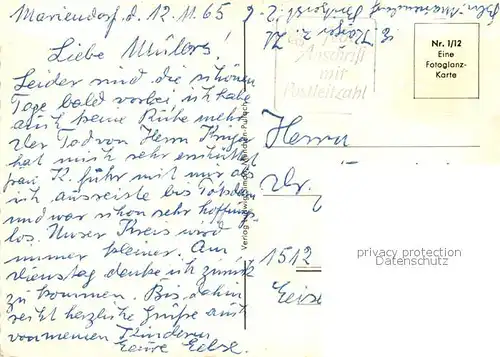 Mariendorf d. 12.11.65
Liebe Müllers!
Leider sind die schönen
Tage bald vorbei, ich habe
auch keine Ruhe mehr.
Der Tod von Herrn Krüger
hat mich sehr erschüttert
Frau K. fuhr mit mir als
ich ausreiste bis Potsdam
und war schon sehr hoffnungs-
los. Unser Kreis wird
immer kleiner. Am
Dienstag denke ich zurück
zu kommen. Bis dahin
recht herzliche Grüße auch
von meinen Kindern
Eure
Anschrift
mit
Postleitzahl
Nr. 1/12
Eine
Fotoglanz-
Karte
Verlag Ludwig Simon, München-Pullach
Herrn
Dr.
1512
privacy protection
Datenschutz